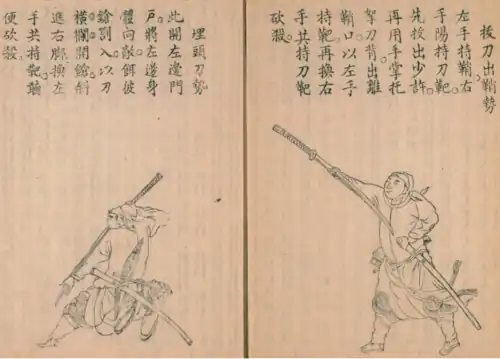 拔刀出鞘勢
左手持鞘右
手陽持刀靶
先拔出少許
再用手掌托
挐刀背出離
鞘口以左手
持靶再換右
手共持刀靶
砍殺
埋頭刀勢
此開左邊門
戶將左邊身
體向敵餌彼
鎗劄入以刀
橫攔開鎗斜
進右脚換左
手共持靶
便砍殺